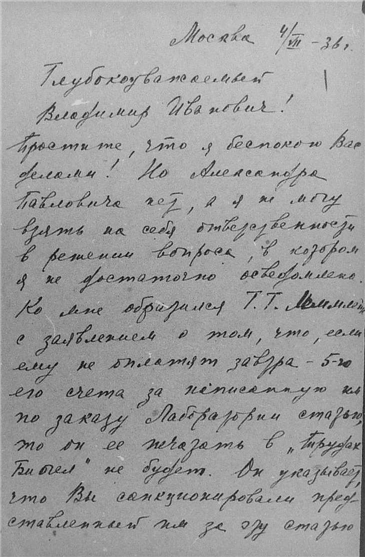 Москва 4/VII – 36 г.
Глубокоуважаемый
Владимир Иванович!
Простите, что я беспокою Вас
делами! Но Александра
Павловича нет, а я не могу
взять на себя ответственности
в решении вопроса, в котором
я не достаточно осведомлена.
Ко мне обратился Т.Т.
с заявлением о том, что, если
ему не оплатят завтра – 5-го
его счета за написанную им
по заказу Лаборатории статью,
то он ее печатать в „Трудах
Биогел" не будет. Он указывает,
что Вы санкционировали пред-
ставленный им за эту статью